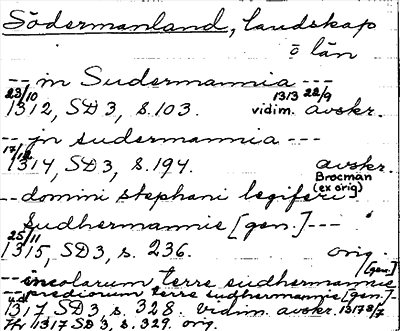 Södermanland, landskap
o län
--- in Sudermannia ---
23/10 1313 22/9
1312, SD 3, s. 103. vidim. avskr.
--- jn sudermannia ---
17/12
1314, SD 3, s. 194. avskr.
Brocman
(ex orig)
--- domini stephani legiferi
Sudhermannie [gen.] ---
25/11
1315, SD 3, s. 236. orig
--- incolarum terre sudhermannie [gen.]
--- prediorum terre sudhermannie [gen.] ---
u.d.
1317 SD 3, s. 328. vidim. avskr. 1317
1317 SD 3, s. 329. orig.